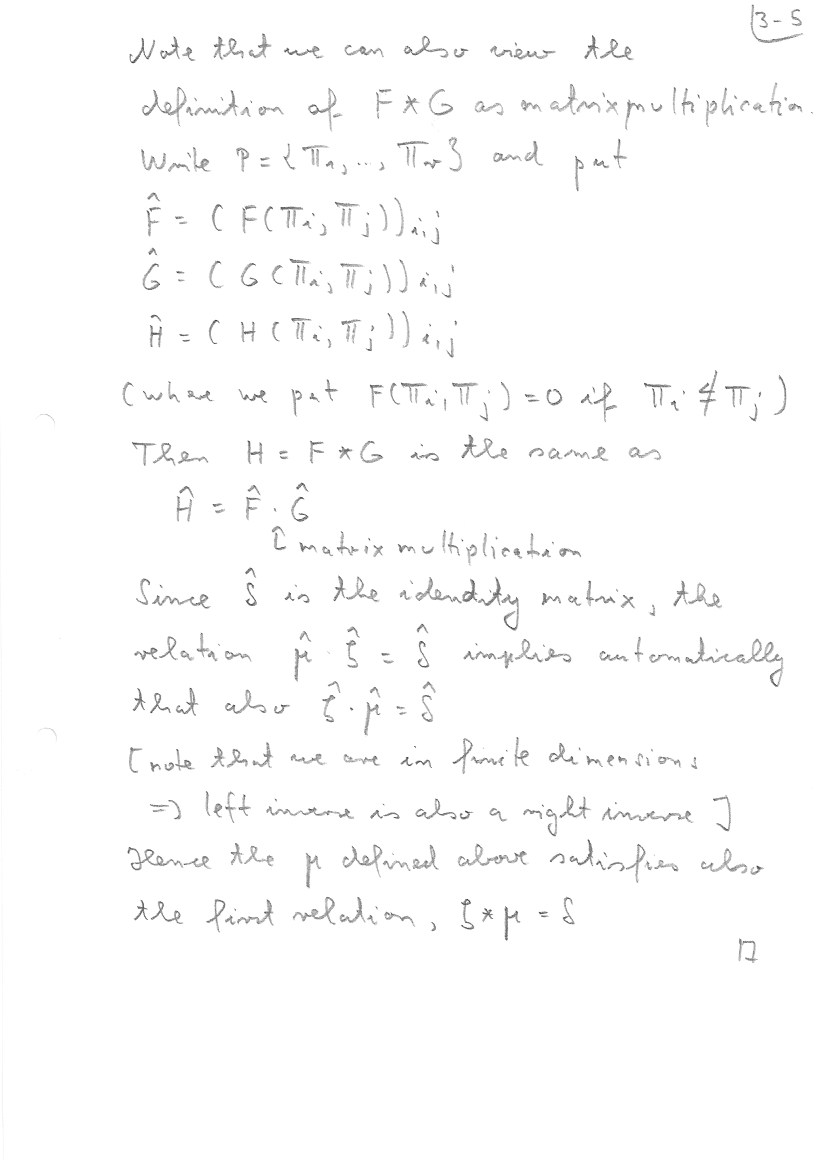 3-5
Note that we can also view the
definition of F * G as matrix multiplication.
Write P = {π₁, ..., πᵣ} and put
F̂ = ( F(πᵢ, πⱼ))ᵢ,ⱼ
Ĝ = ( G (πᵢ, πⱼ))ᵢ,ⱼ
Ĥ = ( H (πᵢ, πⱼ))ᵢ,ⱼ
(where we put F(πᵢ, πⱼ) = 0 if πᵢ ≰ πⱼ)
Then H = F * G is the same as
Ĥ = F̂ · Ĝ
↑ matrix multiplication
Since δ̂ is the idendity matrix, the
relation μ̂ · ζ̂ = δ̂ implies automatically
that also ζ̂ · μ̂ = δ̂
[note that we are in finite dimensions
=> left inverse is also a right inverse ]
Hence the μ defined above satisfies also
the first relation, ζ * μ = δ
□